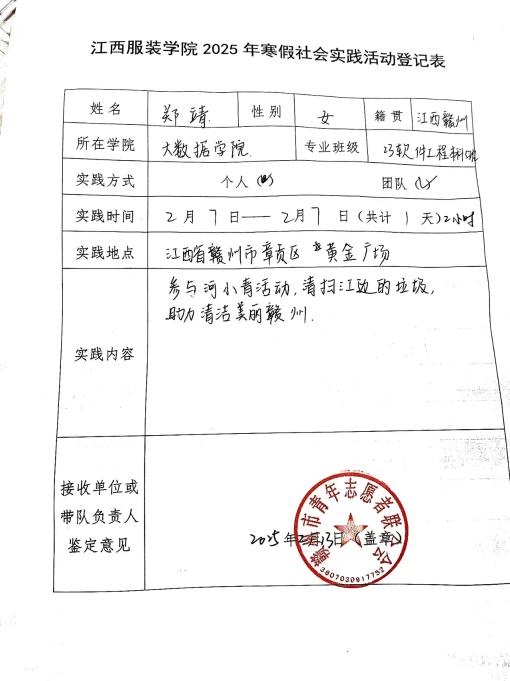 江西服装学院 2025 年寒假社会实践活动登记表
姓名 郑靖 性别 女 籍贯 江西赣州
所在学院 大数据学院 专业班级 23软件工程
实践方式 个人 团队
实践时间 2月7日——2月7日(共计1天)2小时
实践地点 江西省赣州市章贡区黄金广场
实践内容
参与河小青活动,清扫江边的垃圾,
助力清洁美丽赣州.
接收单位或
带队负责人
鉴定意见
2025年2月13日(盖章)
赣州市青年志愿者联合会
3607030917752